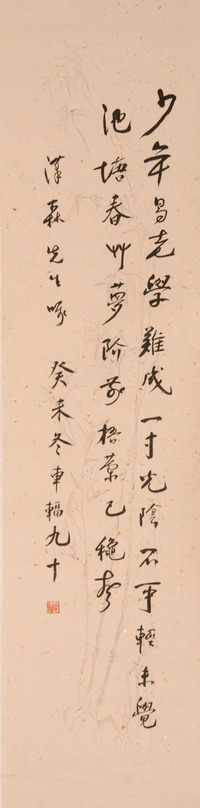 少年易老學難成一寸光陰不可輕未覺
池塘春艸夢阶前梧葉已穐聲
漢森先生 癸未冬車輻九十